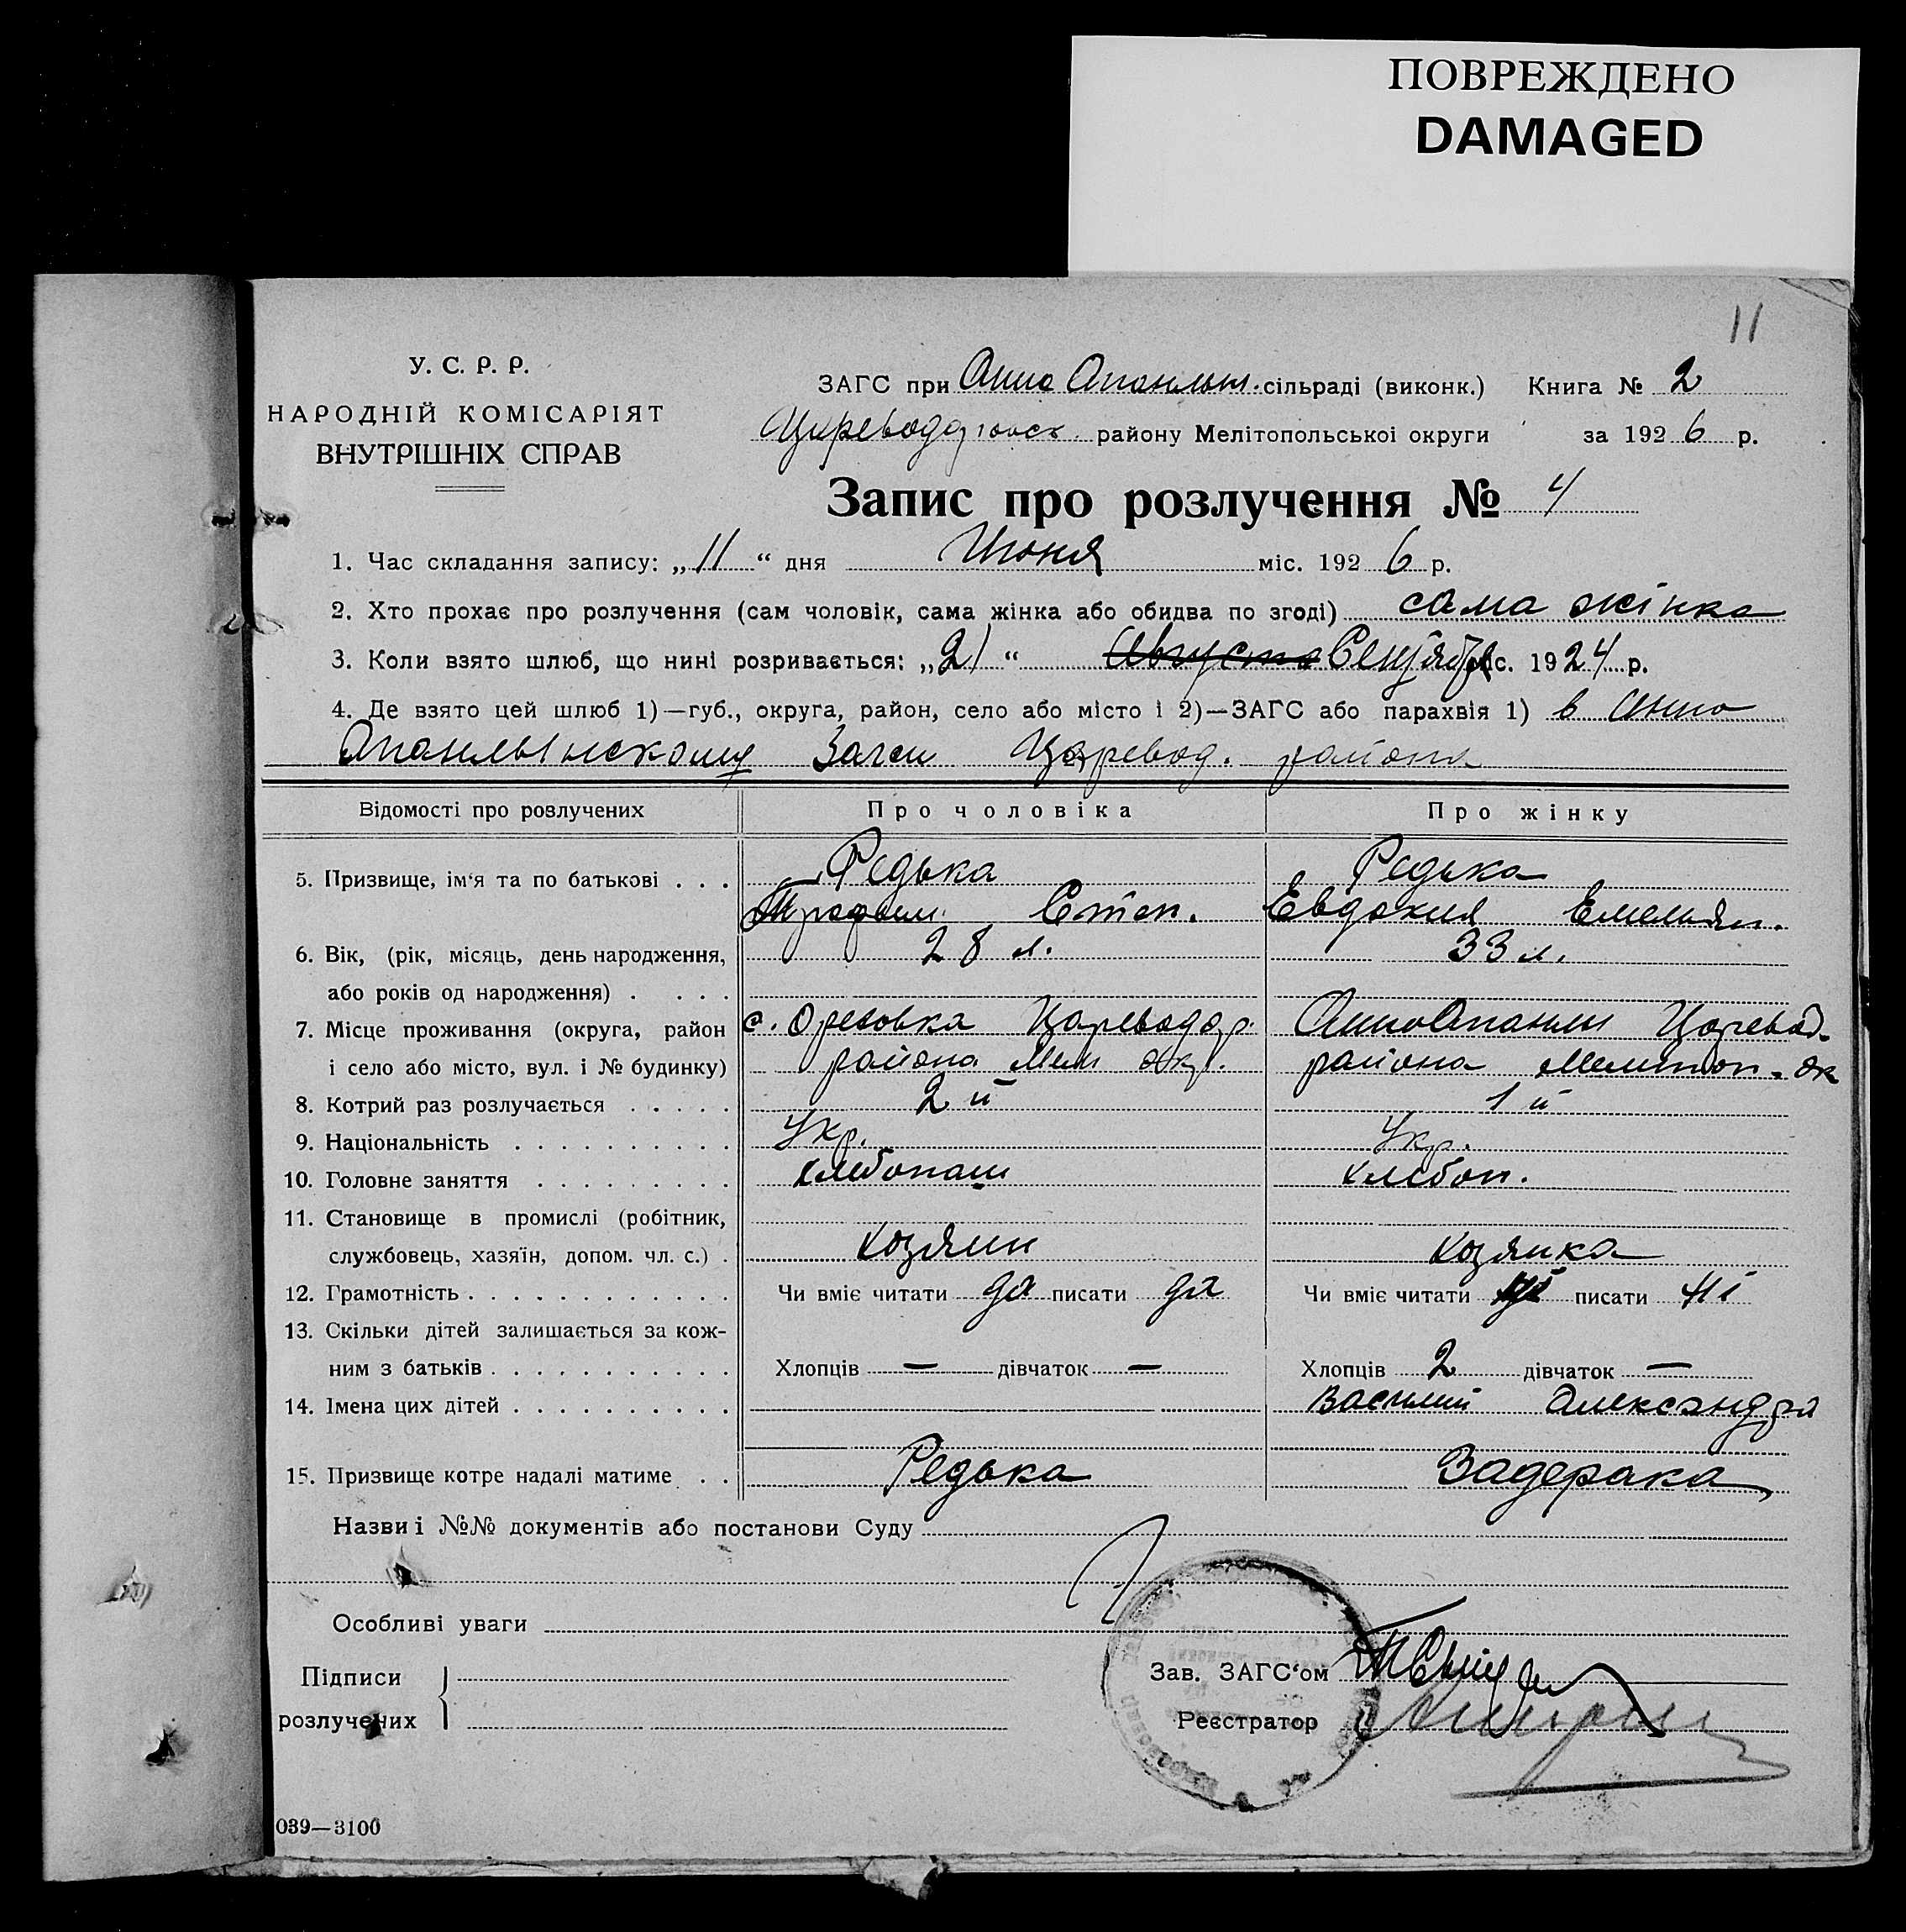 ПОВРЕЖДЕНО
DAMAGED
11
У. С. Р. Р.
НАРОДНІЙ КОМІСАРІЯТ
ВНУТРІШНІХ СПРАВ
ЗАГС при Анно Опанльин. сільраді (виконк.) Книга № 2
району Мелітопольської округи за 1926 р.
Запис про розлучення № 4
1. Час складання запису: „11“ дня Июня міс. 1926 р.
2. Хто прохає про розлучення (сам чоловік, сама жінка або обидва по згоді) сама жінка
3. Коли взято шлюб, що нині розривається: „21“ Августа Сентября міс. 1924 р.
4. Де взято цей шлюб 1)—губ., округа, район, село або місто і 2)—ЗАГС або парахвія 1) в Анно
Царевод. района
Відомості про розлучених Про чоловіка Про жінку
5. Призвище, ім‘я та по батькові . . . Редька Редька
Трофим Степ. Евдокия Емельян.
6. Вік, (рік, місяць, день народження, 28 л. 33 л.
або років од народження) . . . .
7. Місце проживання (округа, район с. Ореховка Цареводар. Царевод.
і село або місто, вул. і № будинку) района Мел окр. района Мелитоп. ок
8. Котрий раз розлучається . . . . . 2й 1й
9. Національність . . . . . . . . . . Укр. Укр.
10. Головне заняття . . . . . . . . . хлебопаш хлебоп.
11. Становище в промислі (робітник,
службовець, хазяїн, допом. чл. с.) . хозяин хозяйка
12. Грамотність . . . . . . . . . . . . Чи вміє читати да писати да Чи вміє читати ні писати ні
13. Скільки дітей залишається за кож-
ним з батьків . . . . . . . . . . . Хлопців — дівчаток — Хлопців 2 дівчаток —
14. Імена цих дітей . . . . . . . . . . Василий Александра
15. Призвище котре надалі матиме . . Редька Задерака
Назви і №№ документів або постанови Суду
Особливі уваги
Підписи
розлучених
Зав. ЗАГС‘ом
Реєстратор
039—3100